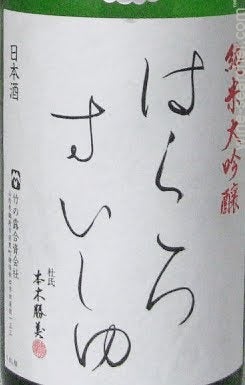 純米大吟醸
はくろ
すいしゅ
日本酒
竹の露合資会社
杜氏
本木勝美